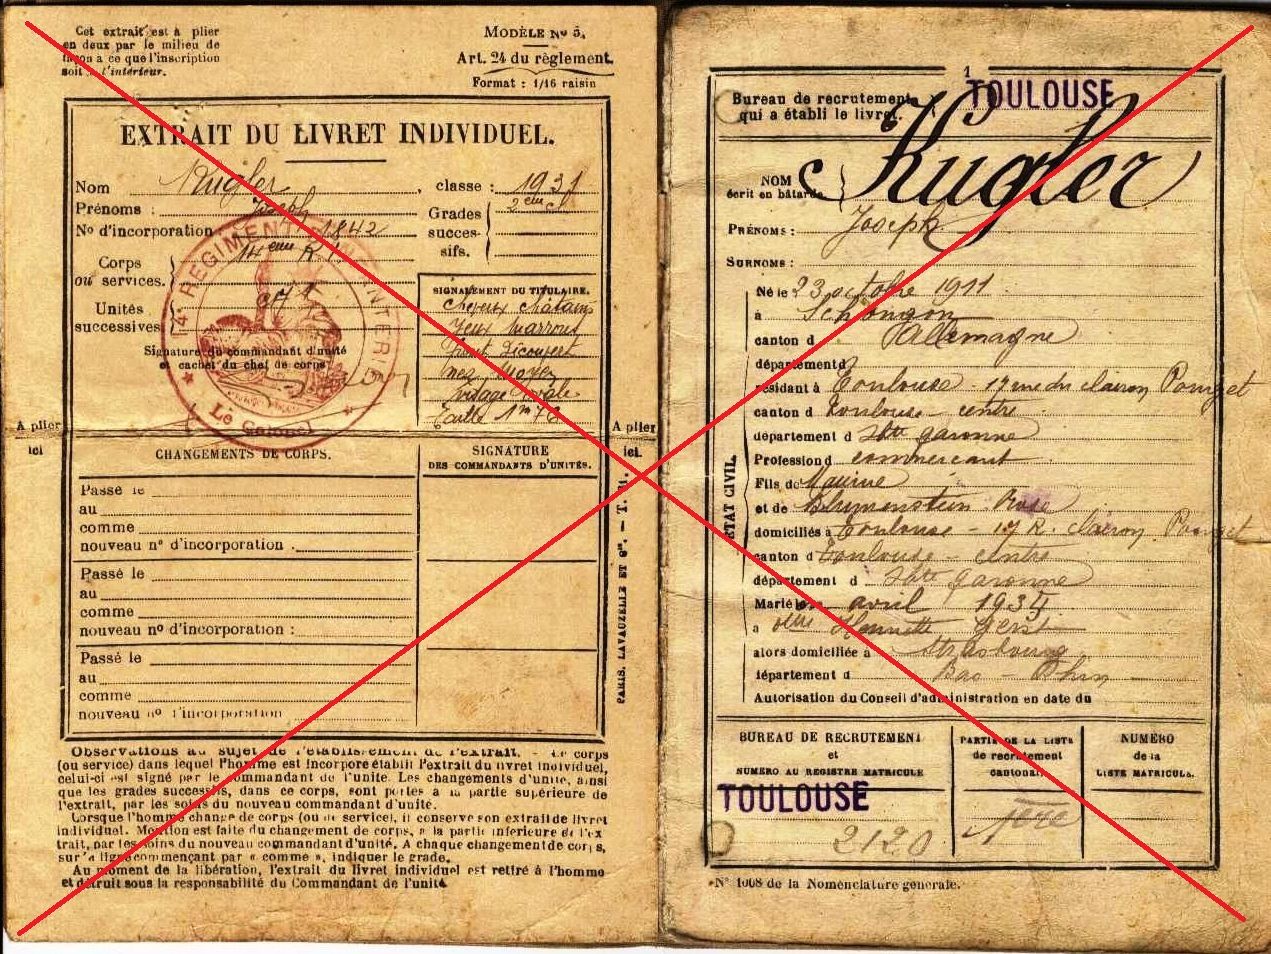 Cet extrait est à plier
en deux par le milieu de
façon a ce que l'inscription
soit à l'intérieur.
MODÈLE No 5,
Art. 24 du règlement.
Format : 1/16 raisin
EXTRAIT DU LIVRET INDIVIDUEL.
Nom Kugler
Prénoms : Joseph
No d'incorporation 1842
Corps
ou services. 14eme R.I.
Unités
successives
Signature du commandant d'unité
et cachet du chef de corps
14e REGIMENT D'INFANTERIE
Le Colonel
classe : 1931
Grades
succes-
sifs.
2eme cl
SIGNALEMENT DU TITULAIRE.
Cheveux châtains
Yeux marrons
Front découvert
nez moyen
visage ovale
Taille 1m 76
A plier
ici
A plier
ici.
CHANGEMENTS DE CORPS.
SIGNATURE
DES COMMANDANTS D'UNITÉS.
Passé le
au
comme
nouveau no d'incorporation .
Passé le
au
comme
nouveau no d'incorporation :
Passé le
au
comme
nouveau no d'incorporation
PARIS. LAVAUZELLE ET Cie. — T.
Observations au sujet de l'établissement de l'extrait. — Le corps
(ou service) dans lequel l'homme est incorporé établit l'extrait du livret individuel,
celui-ci est signé par le commandant de l'unité. Les changements d'unité, ainsi
que les grades successifs, dans ce corps, sont portés à la partie supérieure de
l'extrait, par les soins du nouveau commandant d'unité.
Lorsque l'homme change de corps (ou de service), il conserve son extrait de livret
individuel. Mention est faite du changement de corps, à la partie inférieure de l'ex
trait, par les soins du nouveau commandant d'unité. A chaque changement de corps,
sur la ligne commençant par « comme », indiquer le grade.
Au moment de la libération, l'extrait du livret individuel est retiré à l'homme
et détruit sous la responsabilité du Commandant de l'unité.
1
Bureau de recrutement
qui a établi le livret.
TOULOUSE
NOM
écrit en bâtarde
Kugler
PRÉNOMS : Joseph
SURNOMS :
ETAT CIVIL.
Né le 23 octobre 1911
à
canton d Allemagne
département d
résidant à Toulouse 17 rue du clairon Pouget
canton d Toulouse - centre
département d Hte garonne
Profession d commercant
Fils de Maurice
et de Blumenstein Rose
domiciliés à Toulouse - 17 R. clairon Pouget
canton d Toulouse - centre
département d Hte garonne
Marié le avril 1934
à Henriette Gerst
alors domiciliée à Strasbourg
département d Bas - Rhin
Autorisation du Conseil d'administration en date du
BUREAU DE RECRUTEMENT
et
NUMÉRO AU REGISTRE MATRICULE
TOULOUSE
2120
PARTIE DE LA LISTE
de recrutement
cantonal.
1ère
NUMÉRO
de la
LISTE MATRICULE.
No 1008 de la Nomenclature générale.